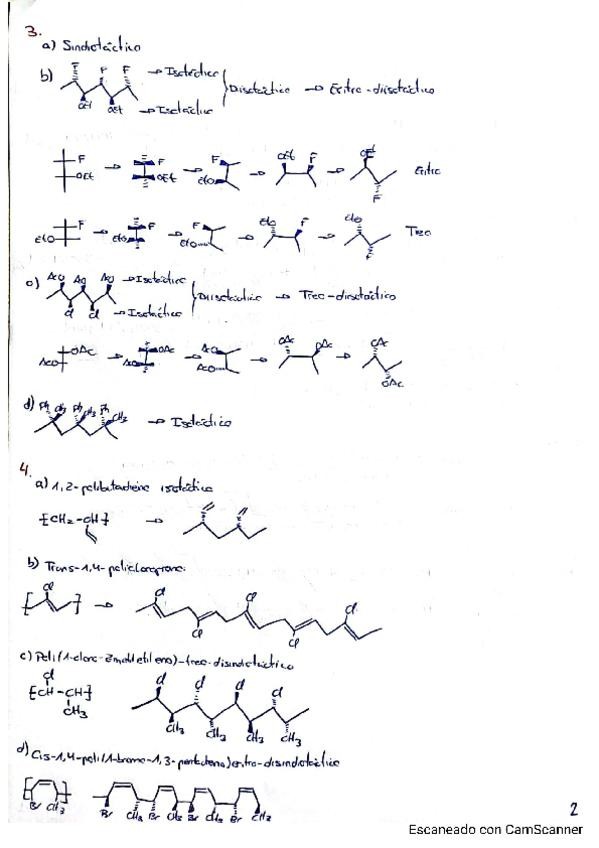 3.
a) Sindiotáctico
b) F F F → Isotáctico
Diisotáctico → Eritro-diisotáctico
OEt OEt → Isotáctico
F F F OEt F OEt
OEt OEt EtO F Eritro
F F F EtO F EtO
EtO EtO EtO F Treo
c) AcO AcO AcO → Isotáctico
Diisotáctico → Treo-diisotáctico
Cl Cl → Isotáctico
OAc OAc AcO OAc OAc OAc
AcO AcO AcO OAc
d) Ph CH3 Ph CH3 Ph CH3 → Isotáctico
4.
a) 1,2-polibutadieno isotáctico
[CH2-CH] →
b) Trans-1,4-policloropreno
Cl Cl Cl Cl
[ ] → Cl Cl
c) Poli(1-cloro-2-metiletileno)-treo-disindiotáctico
Cl Cl Cl Cl Cl
[CH-CH]
CH3 CH3 CH3 CH3 CH3
d) Cis-1,4-poli(1-bromo-1,3-pentadieno)eritro-disindiotáctico
Br CH3 Br CH3 Br CH3 Br CH3 Br CH3
2
Escaneado con CamScanner